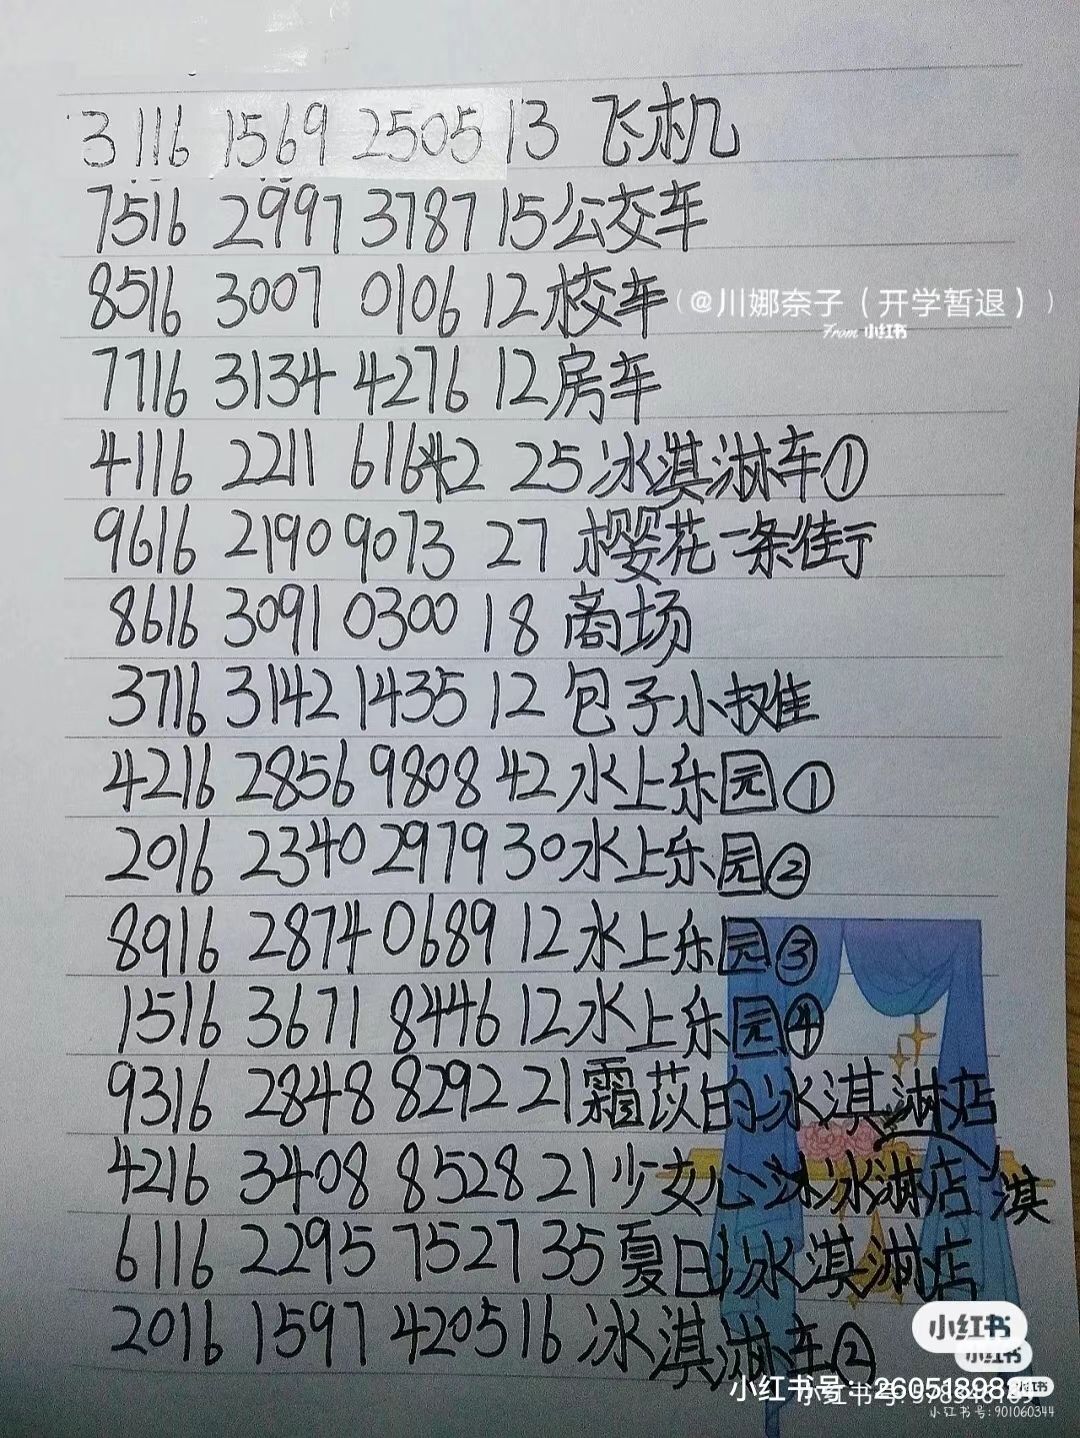 3116 1569 2505 13 飞机
7516 2997 3787 15 公交车
8516 3007 0106 12 校车
(@川娜奈子（开学暂退）)
From 小红书
7716 3134 4276 12 房车
4116 2211 616 42 25 冰淇淋车①
9616 2190 9073 27 樱花一条街
8616 3091 0300 18 商场
3716 3142 1435 12 包子小摊
4216 2856 9808 42 水上乐园①
2016 2340 2979 30 水上乐园②
8916 2874 0689 12 水上乐园③
1516 3671 8446 12 水上乐园④
9316 2848 8292 21 霜苡的冰淇淋店
4216 3408 8528 21 少女心冰淇淋店
6116 2295 7527 35 夏日冰淇淋店
2016 1597 4205 16 冰淇淋车②
小红书
小红书
小红书
小红书号:
小红书号:901060344